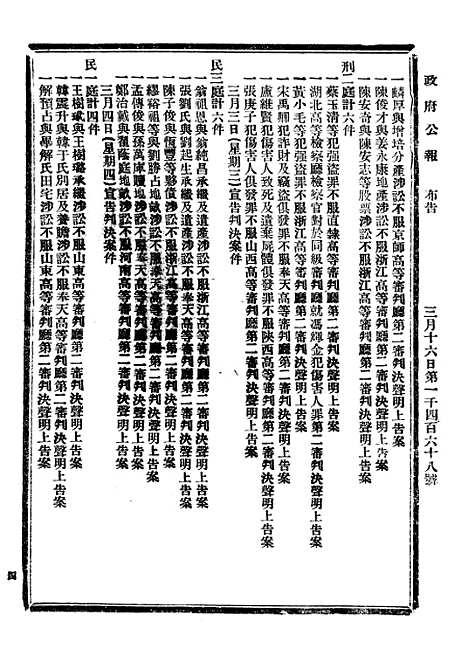 政府公報　布告
三月十六日第一千四百六十八號
一麟厚與增培分產涉訟不服京師高等審判廳第二審判決聲明上告案
一陳俊才與姜永康地產涉訟不服浙江高等審判廳第二審判決聲明上告案
一陳安奇與陳安志等股票涉訟不服浙江高等審判廳第二審判決聲明上告案
刑二庭計六件
一蔡玉清等犯強盜罪不服直隸高等審判廳第二審判決聲明上告案
一湖北高等檢察廳檢察官對於同級審判廳就馮輝金犯傷害人罪第二審判決聲明上告案
一黃小毛等犯強盜罪不服浙江高等審判廳第二審判決聲明上告案
一宋禹疇犯詐財及竊盜俱發罪不服浙江高等審判廳第二審判決聲明上告案
一盧維賢犯傷害人致死及遺棄屍體俱發罪不服陝西高等審判廳第二審判決聲明上告案
一張庚子犯傷害人俱發罪不服山西高等審判廳第二審判決聲明上告案
三月三日(星期三)宣告判決案件
民三庭計六件
一翁祖恩與翁純昌承繼及遺產涉訟不服浙江高等審判廳第二審判決聲明上告案
一張劉氏與劉上超承繼及遺產涉訟不服奉天高等審判廳第二審判決聲明上告案
一陳子俊與恆豐等夥債涉訟不服浙江高等審判廳第二審判決聲明上告案
一繆裕祖等與劉勝占地畝涉訟不服奉天高等審判廳第二審判決聲明上告案
一孟傳俊與孫萬庫賬地涉訟不服奉天高等審判廳第二審判決聲明上告案
一鄭治戴與翟蔭庭地畝涉訟不服河南高等審判廳第二審判決聲明上告案
三月四日(星期四)宣告判決案件
民一庭計四件
一王樹斌與王樹璐承繼涉訟不服山東高等審判廳第二審判決聲明上告案
一韓震升與韓于氏別居及養贍涉訟不服奉天高等審判廳第二審判決聲明上告案
一解預占與學解氏田宅涉訟不服山東高等審判廳第二審判決聲明上告案
四